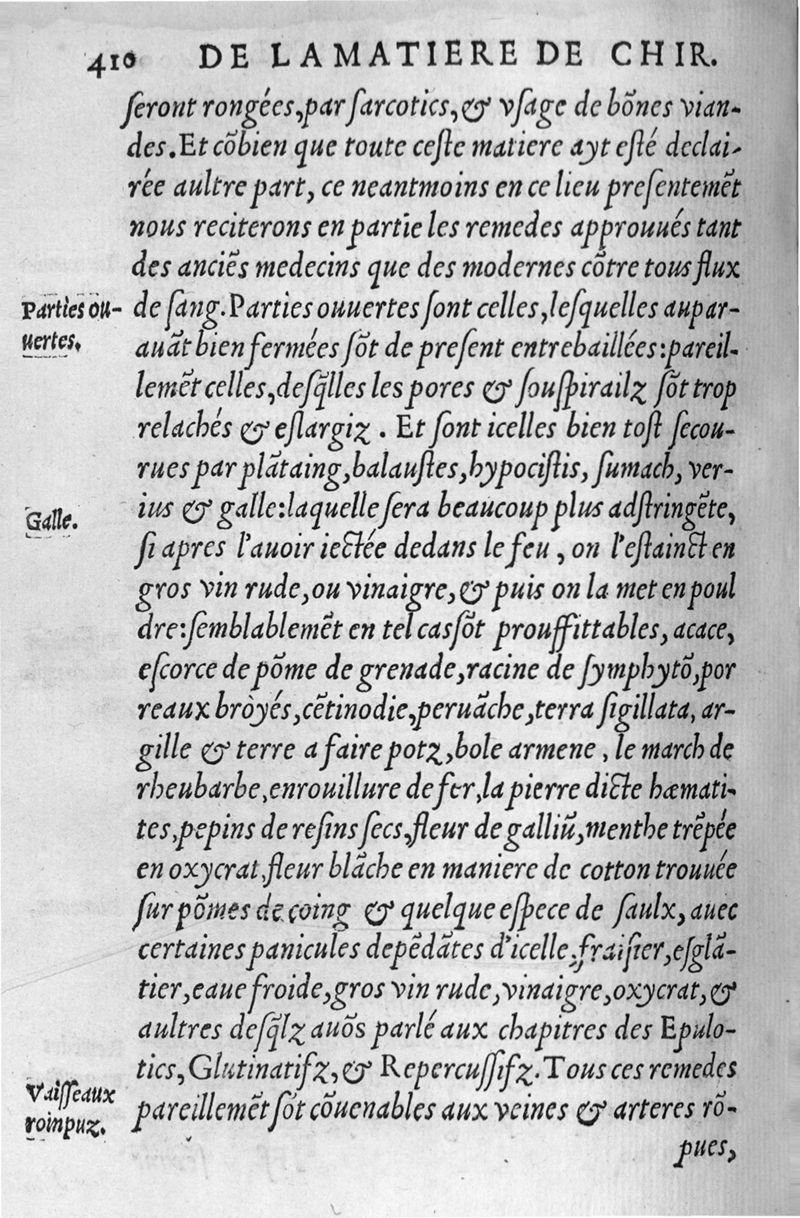 410 DE LA MATIERE DE CHIR.
ſeront rongées,par ſarcotics,& vſage de bõnes vian-
des.Et cõbien que toute ceſte matiere ayt eſté declai-
rée aultre part, ce neantmoins en ce lieu preſentemẽt
nous reciterons en partie les remedes approuués tant
des anciẽs medecins que des modernes cõtre tous flux
Parties ou-
uertes.
de ſang.Parties ouuertes ſont celles,leſquelles aupar-
auãt bien fermées ſõt de preſent entrebaillées:pareil-
lemẽt celles,deſq̃lles les pores & ſouſpirailz ſõt trop
relachés & eſlargiz . Et ſont icelles bien toſt ſecou-
rues par plãtaing,balauſtes,hypociſtis, ſumach, ver-
Galle.
ius & galle:laquelle ſera beaucoup plus adſtringẽte,
ſi apres l'auoir iectée dedans le feu , on l'eſtainct en
gros vin rude,ou vinaigre,& puis on la met en poul
dre:ſemblablemẽt en tel cas ſõt prouffittables, acace,
eſcorce de põme de grenade,racine de ſymphytõ,por
reaux bròyés,cẽtinodie,peruãche,terra ſigillata, ar-
gille & terre a faire potz,bole armene , le march de
rheubarbe,enrouillure de fer,la pierre dicte hæmati-
tes,pepins de reſins ſecs,fleur de galliũ,menthe trẽpée
en oxycrat,fleur blãche en maniere de cotton trouuée
ſur põmes de coing & quelque eſpece de ſaulx, auec
certaines panicules depẽdãtes d'icelle,fraiſier,eſglã-
tier,eaue froide,gros vin rude,vinaigre,oxycrat,&
aultres deſq̃lz auõs parlé aux chapitres des Epulo-
tics, Glutinatifz,& Repercuſſifz.Tous ces remedes
Vaiſſeaux
rompuz.
pareillemẽt ſõt cõuenables aux veines & arteres rõ-
pues,